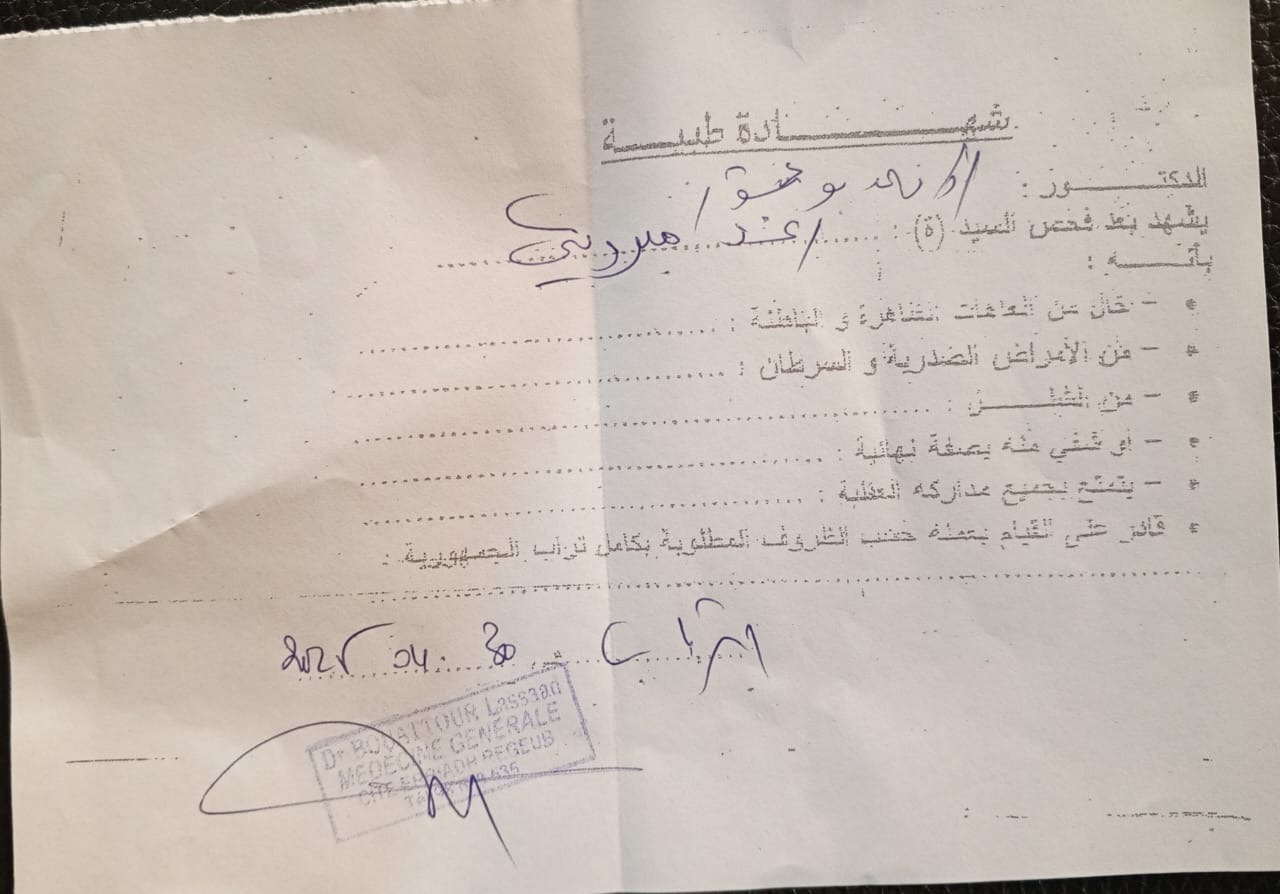 شهـــادة طبيـــة
الدكتـــور :
يشهد بعد فحص السيد (ة) :
بأنـــه :
- خال من العاهات الظاهرة و الباطنة :
- من الأمراض الصدرية و السرطان :
- من الشلـــل :
- أو شفي منه بصفة نهائية :
- يتمتع بجميع مداركه العقلية :
قادر على القيام بعمله حسب الظروف المطلوبة بكامل تراب الجمهورية :
في 30 04. 2025
Dr BOUATTOUR Lassaad
MEDECINE GENERALE
CITE ERRIADH REGEUB